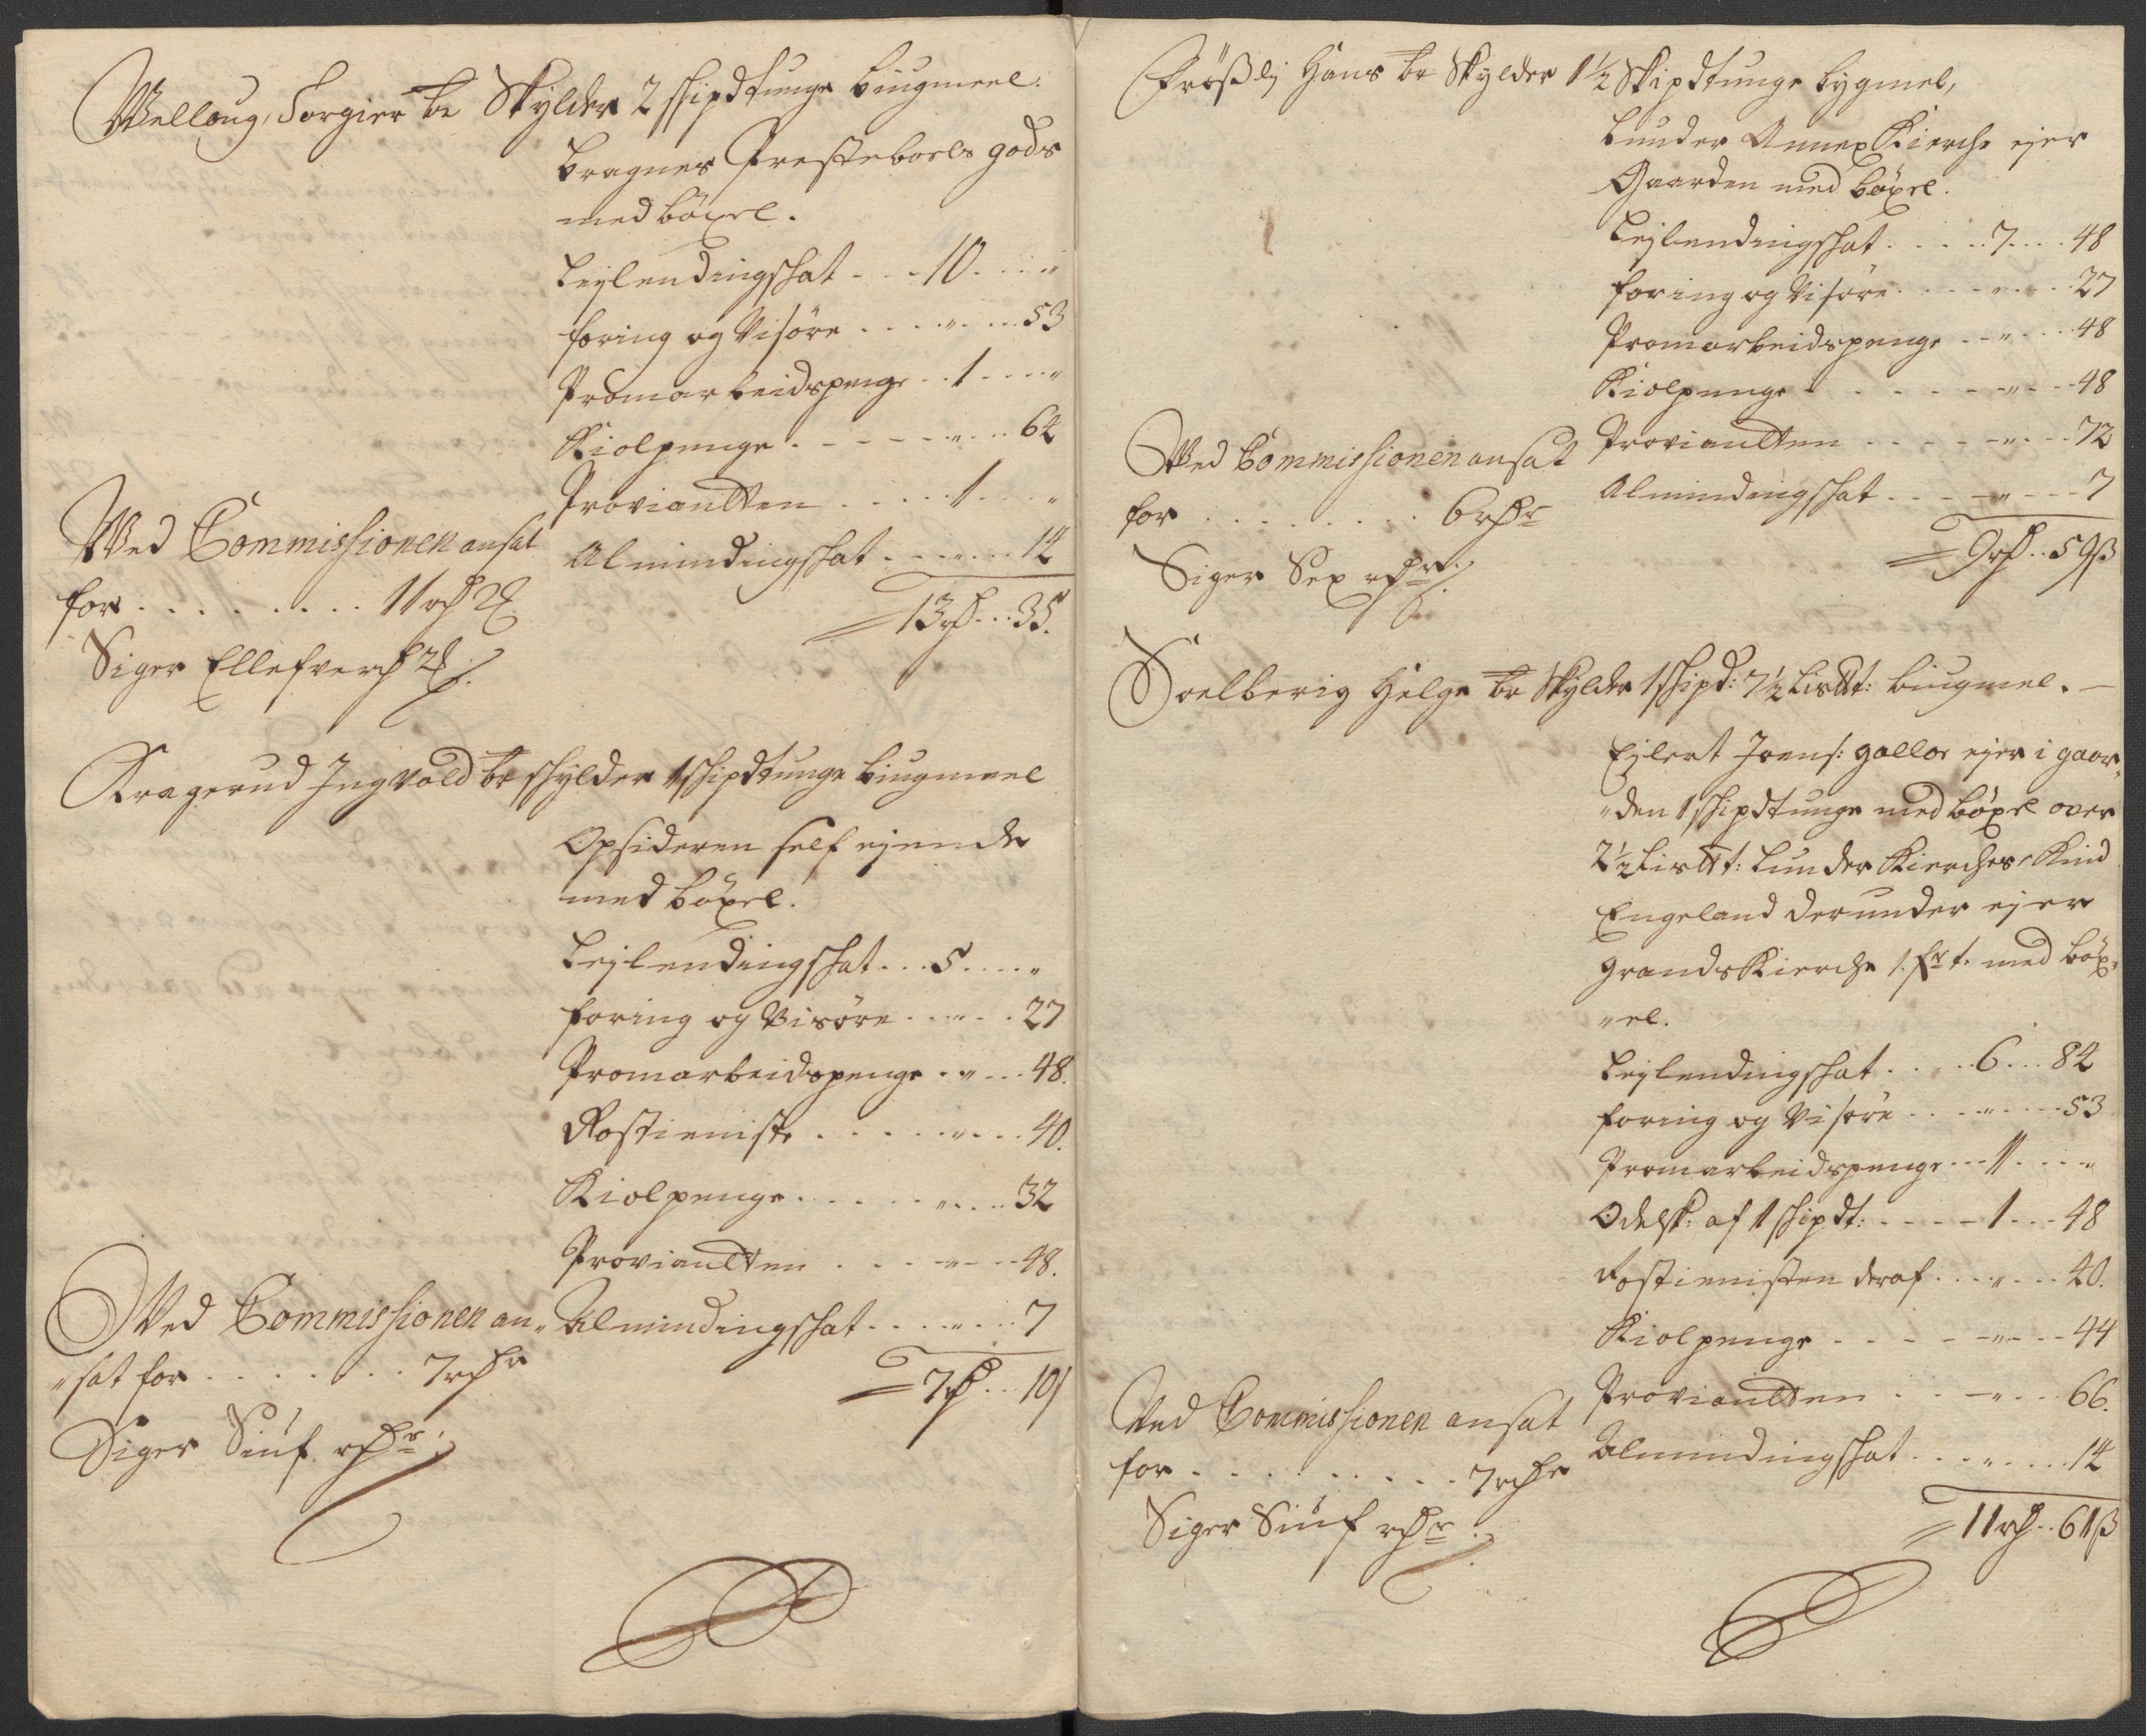 Welloug, Torgier br Skylder 2 skipdtunge biugmeel.
Bragnes Prestebools gods
med böxel.
Leylendingschat . . . 10 . . . "
foring og Visöre . . . " . . . 53
Tromarbeidspenge . . 1 . . . "
Kiolpenge . . . . . " . . 64
Proviantten . . . . . 1 . . . "
Almindingschat . . . " . . . 14
13 rd . . 35.
Wed Commissionen ansat
for . . . . . . . . 11 rdlr
Siger Ellefve rdlr
Kragerud Ingvold br schylder 1 schipdtunge biugmeel
Opsideren self ejende
med böxel.
Leylendingschat . . . 5 . . . "
foring og Visöre . . . " . . 27
Tromarbeidspenge . " . . . 48.
Rostieniste . . . . . " . . . 40.
Kiolpenge . . . . . " . . . 32
Proviantten . . . . " . . . 48.
Almindingschat . . . " . . . 7
7 rd . . 10 s
Wed Commissionen an„
„sat for . . . . . . . 7 rdr
Siger Siuf rdr.
Frößlj Hans br Skylder 1½ Skipdtunge bygmel,
Lunder Annex Kierche ejer
Gaarden med böxel.
Leylendingschat . . . . . 7 . . . 48
foring og Visöre . . . . " . . . 27
Tromarbeidspenge . . " . . . 48
Kiolpenge . . . . . . " . . . 48
Proviantten . . . . . " . . . 72
Almindingschat . . . . " . . . 7
9 rd . . 59 ß
Wed Commissionen ansat
for . . . . . . . . 6 rdr
Siger Sex rdr.
Soelberig Helge br Skylder 1 schipd: 7½ Lisdt: biugmel. —
Ejlert Joens: ejer i gaar„
„den 1 schipdtunge med böxel over
2½ Lisdt: Lunder Kierches,
Engeland derunder ejer
Grands Kierche 1. frt. med böx„
„el.
Leylendingschat . . . . 6 . . . 84
foring og Visöre . . . . " . . . 53
Tromarbeidspenge . . . 1 . . . "
Odelsk: af 1 schipdt: . . . . 1 . . . 48
Rostienisten deraf . . . " . . . 40.
Kiolpenge . . . . . " . . . 44
Proviantten . . . . " . . . 66.
Almindingschat . . . " . . . 14
11 rd . . 61 ß
Ved Commissionen ansat
for . . . . . . . . . 7 rdr
Siger Siuf rdr.